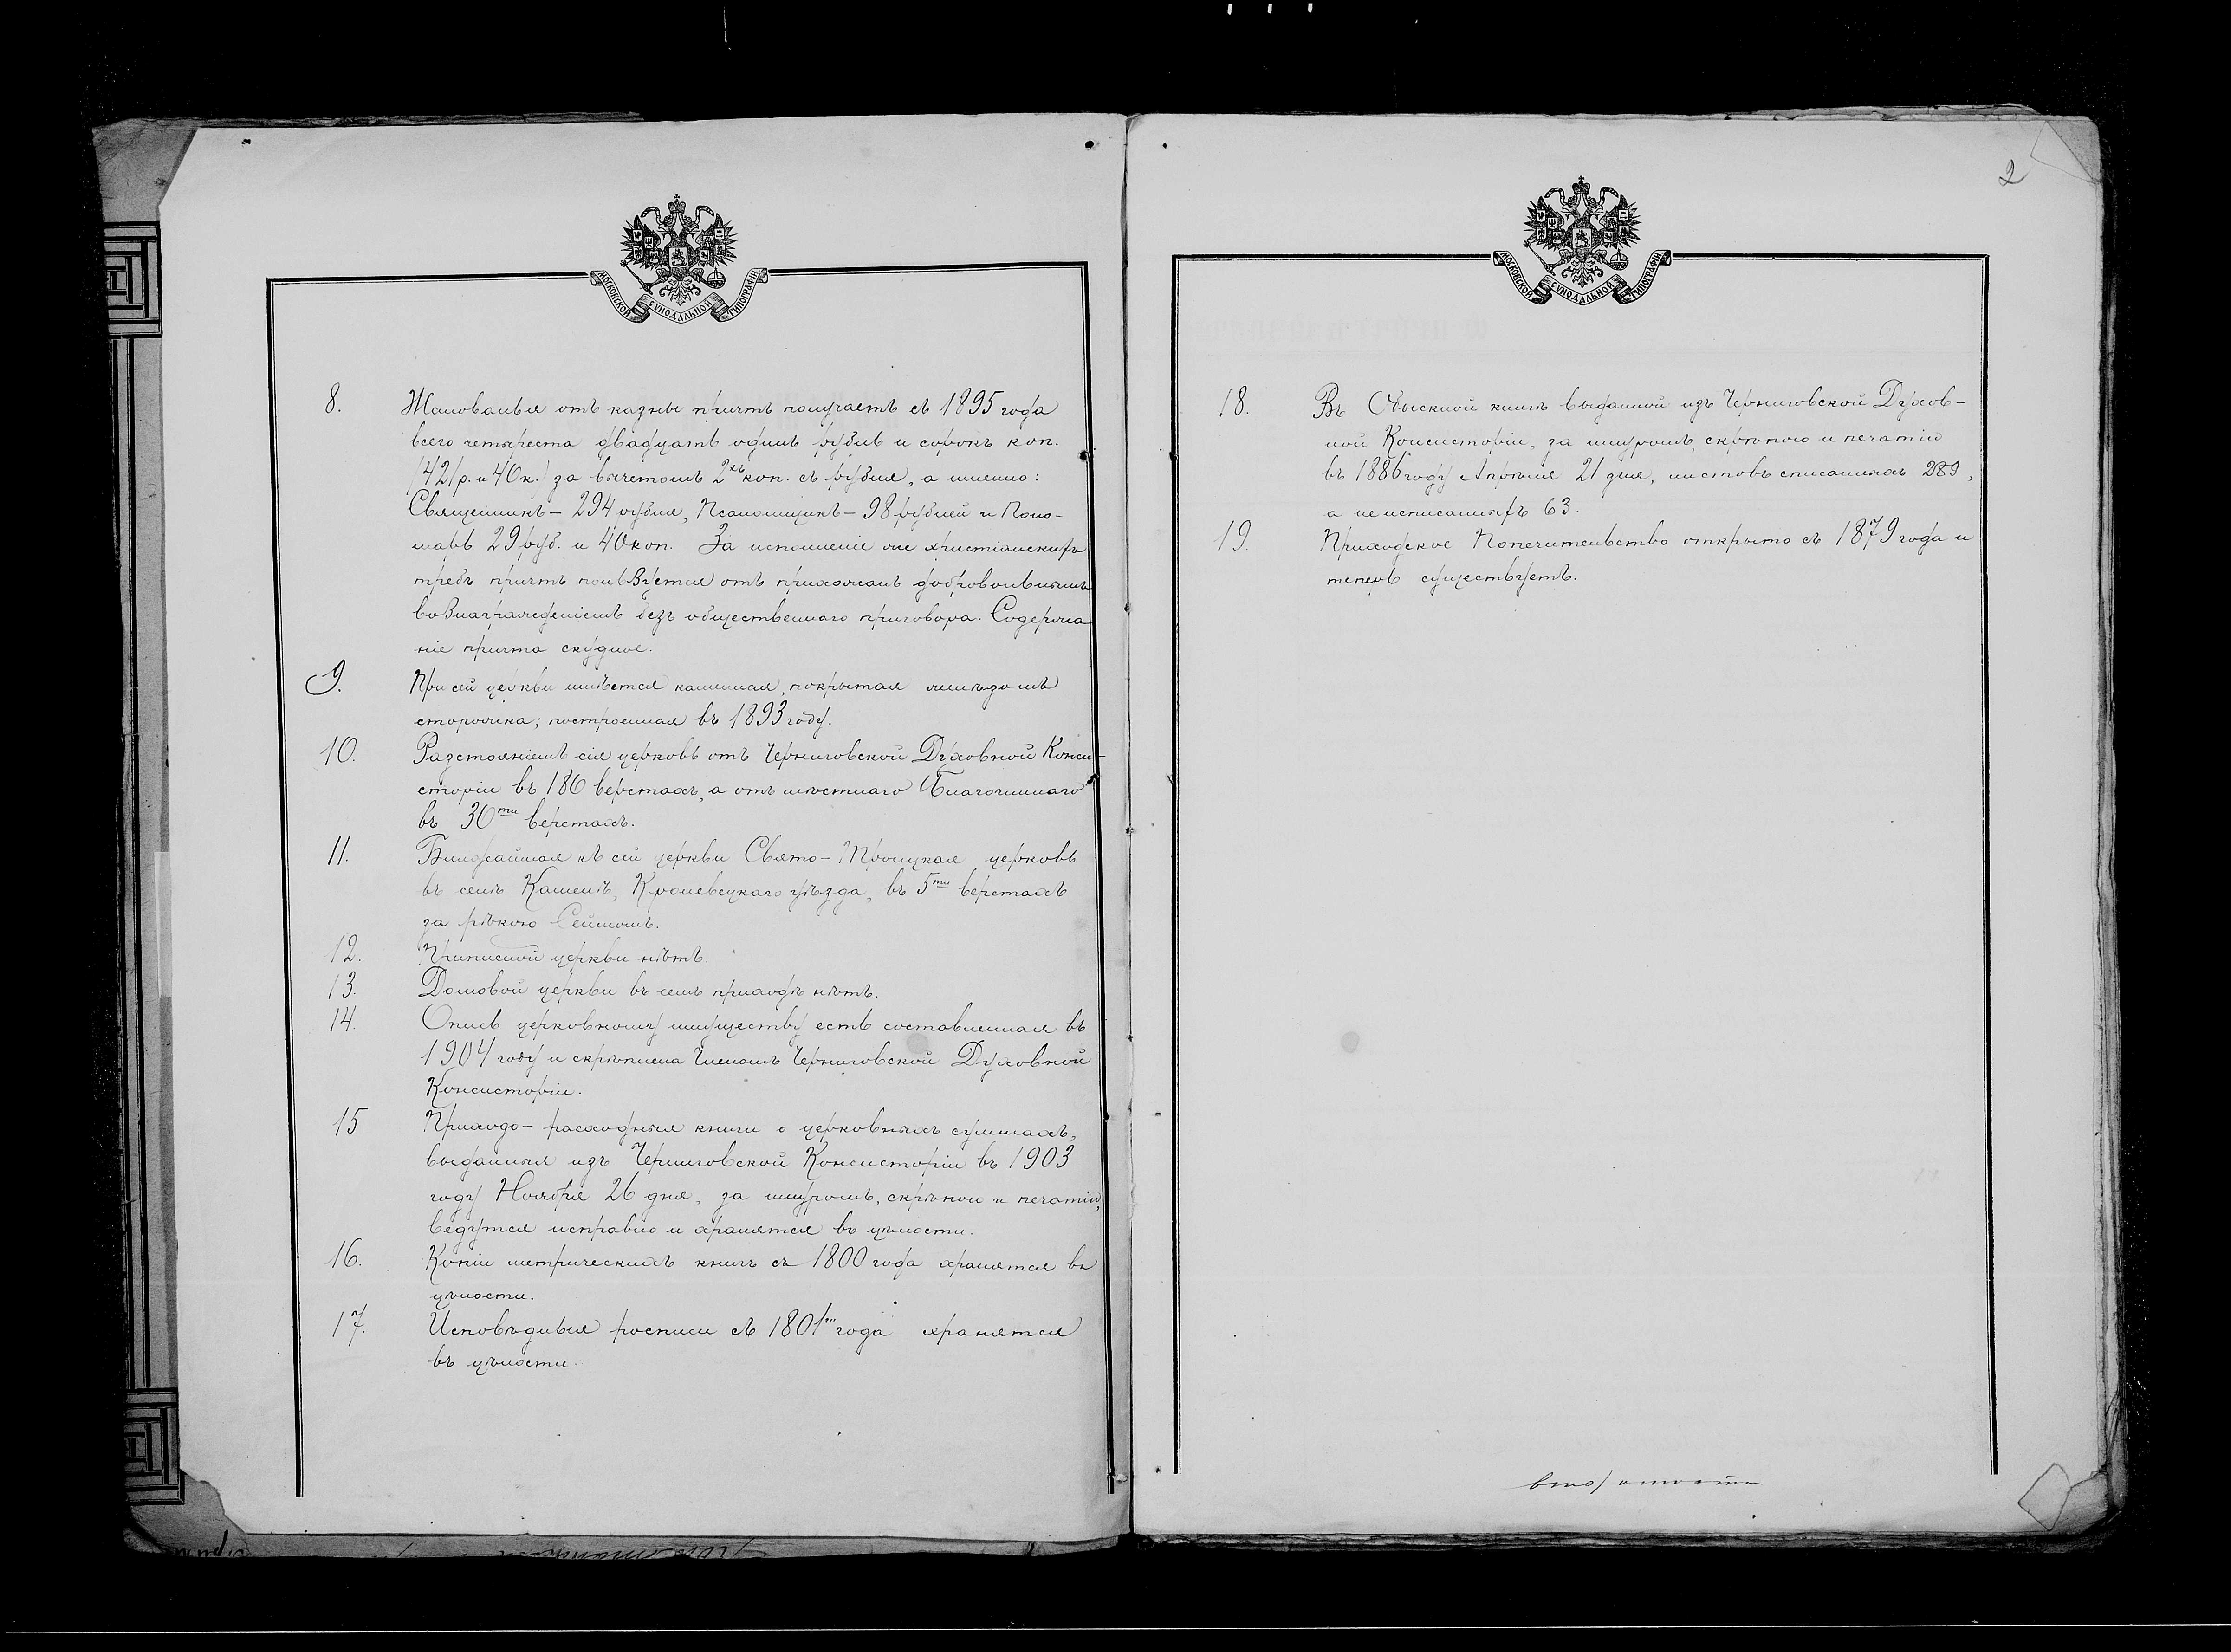 МОСКОВСКОЙ СѴНОДАЛЬНОЙ ТИПОГРАФІИ
8. Жалованья отъ казны причтъ получаетъ съ 1895 года
всего четыреста двадцать одинъ рубль и сорокъ коп.
/421 р. и 40 к./ за вычетомъ 2хъ коп. съ рубля, а именно:
Священникъ - 294 рубля, Псаломщикъ - 98 рублей и Поно-
марь 29 руб. и 40 коп. За исполненіе же христіанскихъ
требъ причтъ пользуется отъ прихожанъ добровольнымъ
вознагражденіемъ безъ общественнаго приговора. Содержа
ніе причта скудное.
9. При сей церкви имѣется каменная, покрытая желѣзомъ
сторожка; построенная въ 1893 году.
10. Разстояніемъ сія церковь отъ Черниговской Духовной Конси-
сторіи въ 180 верстахъ, а отъ мѣстнаго Благочиннаго
въ 30ти верстахъ.
11. Ближайшая къ сей церкви Свято-Троицкая церковь
въ селѣ Камень, Кролевецкаго уѣзда, въ 5ти верстахъ
за рѣкою Сеймомъ.
12. Приписной церкви нѣтъ.
13. Домовой церкви въ семъ приходѣ нѣтъ.
14. Опись церковному имуществу есть составленная въ
1904 году и скрѣплена Членомъ Черниговской Духовной
Консисторіи.
15 Приходо-расходныя книги о церковныхъ суммахъ,
выданныя изъ Черниговской Консисторіи въ 1903
году Ноября 26 дня, за шнуромъ, скрѣпой и печатію,
ведутся исправно и хранятся въ цѣлости.
16. Копіи метрическихъ книгъ съ 1800 года хранятся въ
цѣлости.
17. Исповѣдныя росписи съ 1801го года хранятся
въ цѣлости.
2
МОСКОВСКОЙ СѴНОДАЛЬНОЙ ТИПОГРАФІИ
18. Въ Обыскной книгѣ выданной изъ Черниговской Духов-
ной Консисторіи, за шнуромъ, скрѣпою и печатію
въ 1886 году Апрѣля 21 дня, листовъ списанныхъ 289,
а неисписанныхъ 63.
19. Приходское Попечительство открыто съ 1879 года и
теперь существуетъ.